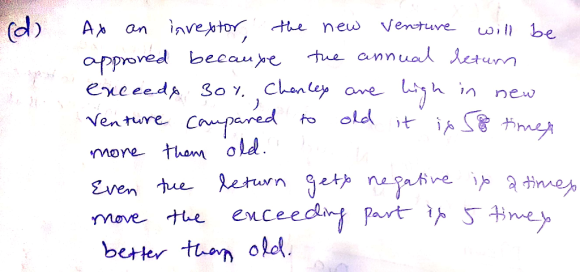 (d) As an investor, the new venture will be
approved because the annual return
exceeds 30%, Chances are high in new
venture compared to old it is 58 times
more them old.
Even the return gets negative is 2 times
more the exceeding part is 5 times
better than old.